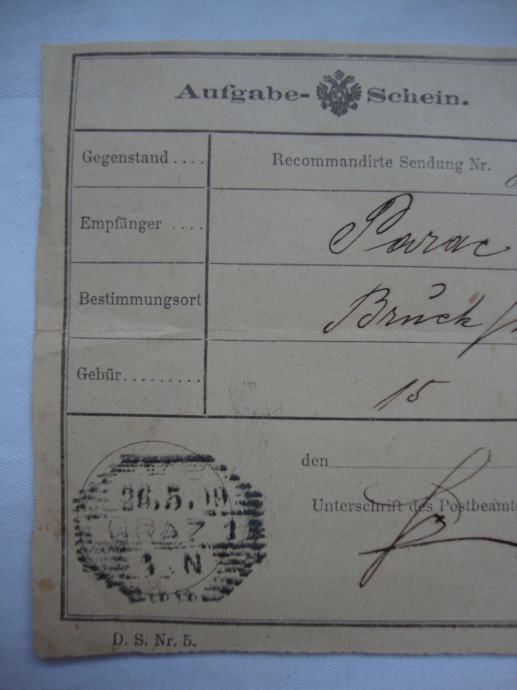 Aufgabe- Schein.
Gegenstand .... Recommandirte Sendung Nr.
Empfänger .... Parac
Bestimmungsort Bruck
Gebür......... 15
den
26.5.
GRAZ 1
1. N
Unterschrift des Postbeamte
D. S. Nr. 5.